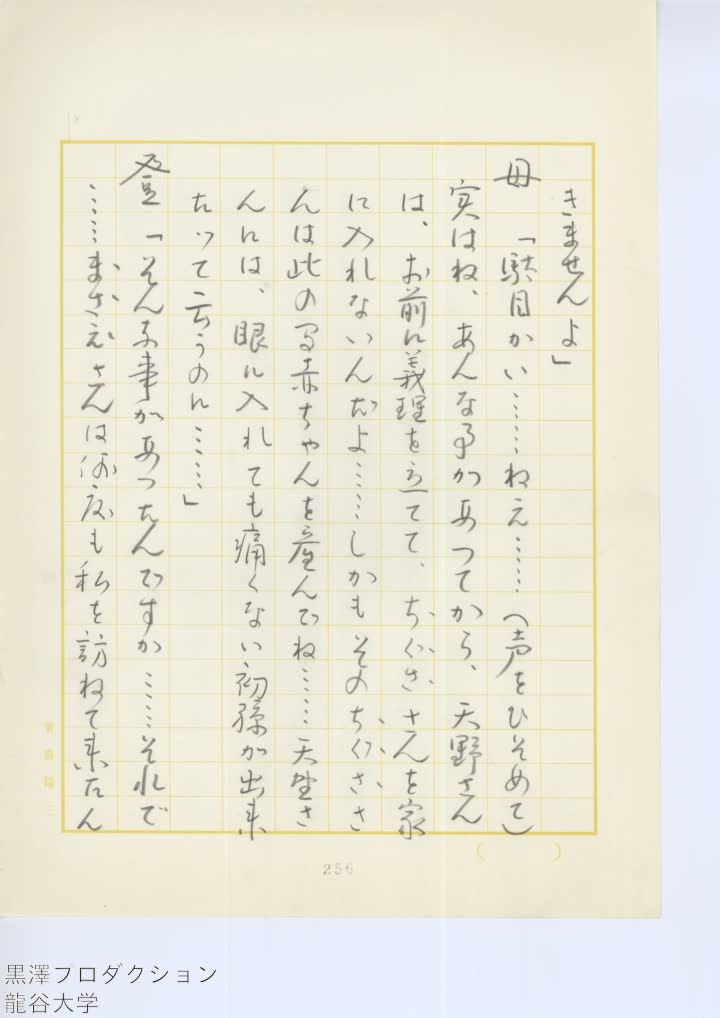 きませんよ」
母「駄目かい……ねえ……(声をひそめて)
実はね、あんな事があつてから、天野さん
は、お前に義理を立てて、ちぐささんを家
に入れないんだよ……しかもそのちぐささ
んは此の間赤ちゃんを産んでね……天野さ
んには、眼に入れても痛くない初孫が出来
たって言うのに……」
登「そんな事があつたんですか……それで
……まさえさんは何度も私を訪ねて来たん
256
黒澤プロダクション
龍谷大学